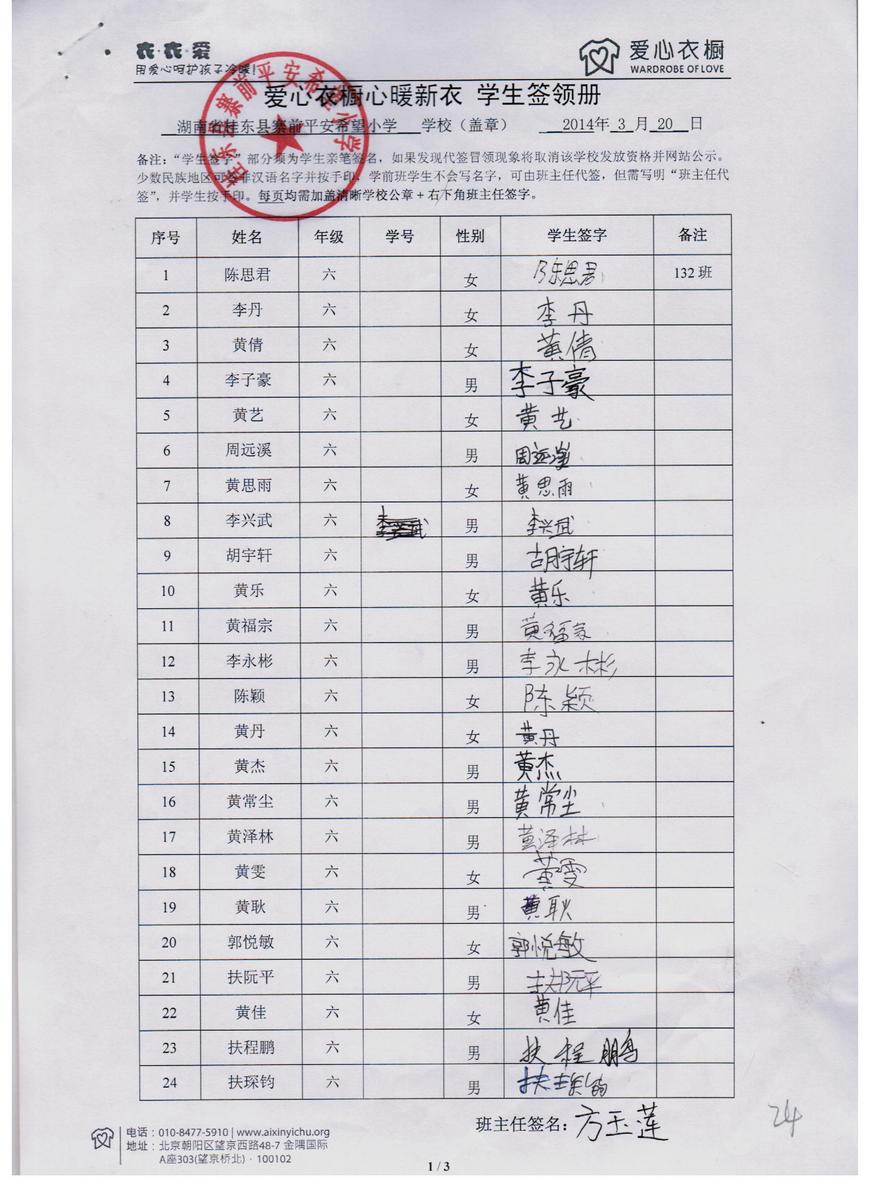 衣·衣·爱
用爱心呵护孩子冷暖!
爱心衣橱
WARDROBE OF LOVE
爱心衣橱心暖新衣 学生签领册
湖南省桂东县寨前平安希望小学 学校（盖章） 2014年 3 月 20 日
桂东县寨前平安希望小学
备注：“学生签字”部分须为学生亲笔签名，如果发现代签冒领现象将取消该学校发放资格并网站公示。
少数民族地区可签非汉语名字并按手印。学前班学生不会写名字，可由班主任代签，但需写明“班主任代
签”，并学生按手印。每页均需加盖清晰学校公章＋右下角班主任签字。
序号 姓名 年级 学号 性别 学生签字 备注
1 陈思君 六 女 陈思君 132 班
2 李丹 六 女 李丹
3 黄倩 六 女 黄倩
4 李子豪 六 男 李子豪
5 黄艺 六 女 黄艺
6 周远溪 六 男 周远溪
7 黄思雨 六 女 黄思雨
8 李兴武 六 李兴武 男 李兴武
9 胡宇轩 六 男 胡宇轩
10 黄乐 六 女 黄乐
11 黄福宗 六 男 黄福宗
12 李永彬 六 男 李永彬
13 陈颖 六 女 陈颖
14 黄丹 六 女 黄丹
15 黄杰 六 男 黄杰
16 黄常尘 六 男 黄常尘
17 黄泽林 六 男 黄泽林
18 黄雯 六 女 黄雯
19 黄耿 六 男 黄耿
20 郭悦敏 六 女 郭悦敏
21 扶阮平 六 男 扶阮平
22 黄佳 六 女 黄佳
23 扶程鹏 六 男 扶程鹏
24 扶琛钧 六 男 扶琛钧
班主任签名：方玉莲
24
电话：010-8477-5910 | www.aixinyichu.org
地址：北京朝阳区望京西路48-7 金隅国际
A座303(望京桥北)·100102
1 / 3